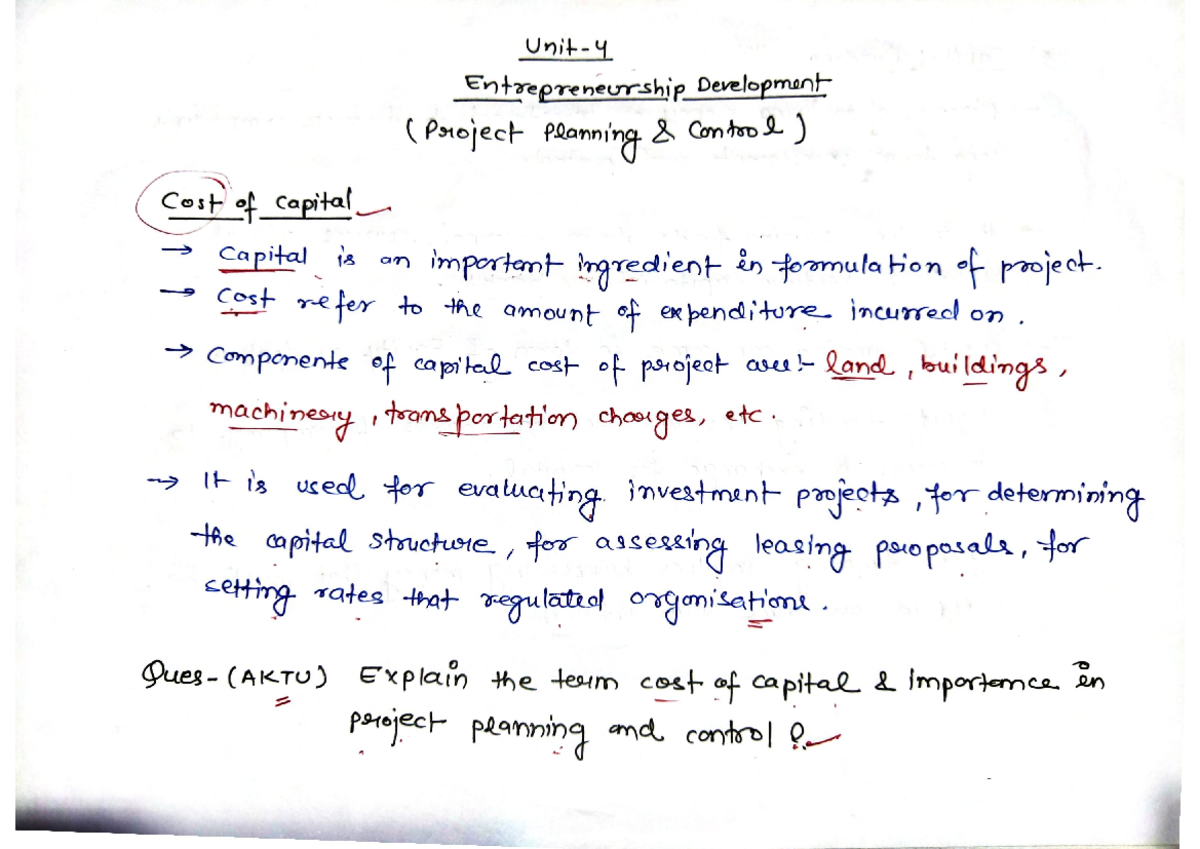 Unit-4
Entrepreneurship Development
(Project Planning & Control)
Cost of Capital
→ Capital is an important ingredient in formulation of project.
→ Cost refer to the amount of expenditure incurred on.
→ Components of capital cost of project are:- land, buildings,
machinery, transportation charges, etc.
→ It is used for evaluating investment projects, for determining
the capital structure, for assessing leasing proposals, for
setting rates that regulated organisations.
Ques-(AKTU) Explain the term cost of capital & importance in
project planning and control ?